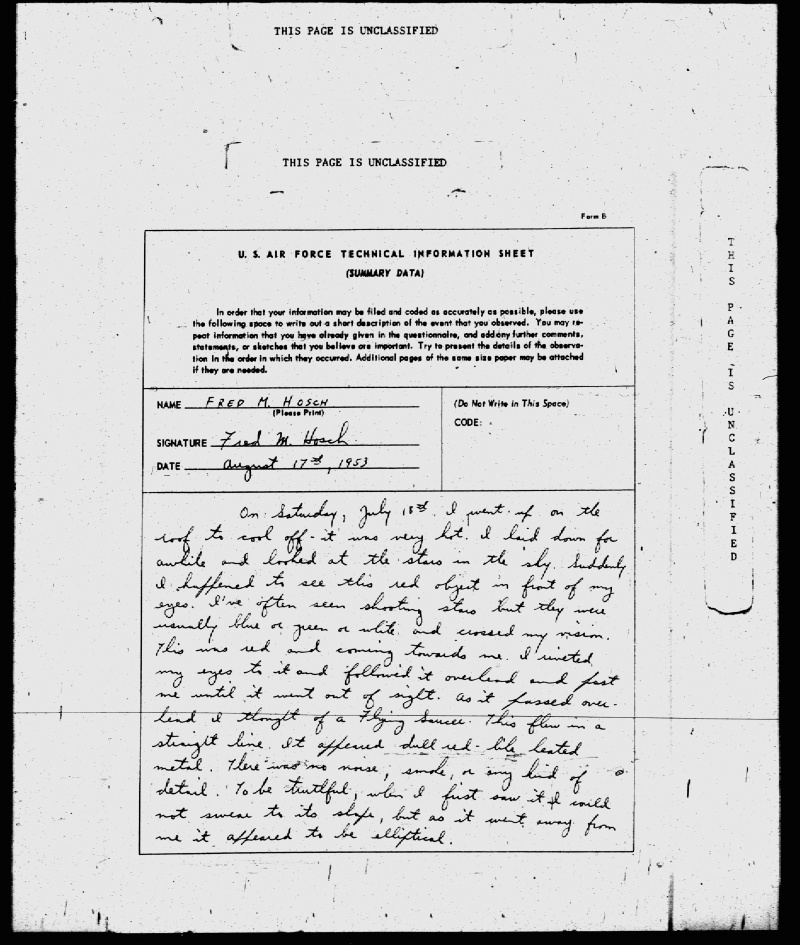 THIS PAGE IS UNCLASSIFIED
THIS PAGE IS UNCLASSIFIED
Form B
U. S. AIR FORCE TECHNICAL INFORMATION SHEET
(SUMMARY DATA)
In order that your information may be filed and coded as accurately as possible, please use
the following space to write out a short description of the event that you observed. You may re-
peat information that you have already given in the questionnaire, and add any further comments,
statements, or sketches that you believe are important. Try to present the details of the observa-
tion in the order in which they occurred. Additional pages of the same size paper may be attached
if they are needed.
NAME FRED M. HOSCH
(Please Print)
SIGNATURE Fred M. Hosch
DATE August 17th, 1953
(Do Not Write in This Space)
CODE:
On Saturday, July 18th I went up on the
roof to cool off - it was very hot. I laid down for
awhile and looked at the stars in the sky. Suddenly
I happened to see this red object in front of my
eyes. I've often seen shooting stars but they were
usually blue or green or white and crossed my vision.
This was red and coming towards me. I riveted
my eyes to it and followed it overhead and past
me until it went out of sight. As it passed over-
head I thought of a Flying Saucer. This flew in a
straight line. It appeared dull red - like heated
metal. There was no noise, smoke, or any kind of
detail. To be truthful, when I first saw it I could
not swear to its shape, but as it went away from
me it appeared to be elliptical.
THIS PAGE IS UNCLASSIFIED